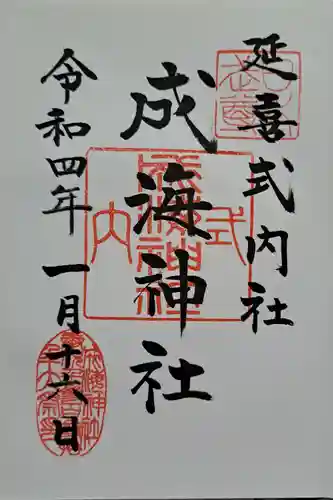 延喜式内社
成海神社
令和四年一月十六日
式内
成海神社